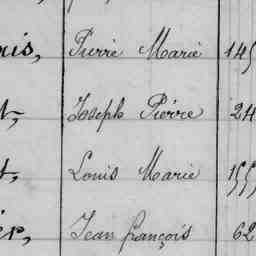 is, Pierre Marie 145
t, Joseph Pierre 24
t, Louis Marie 155
er, Jean françois 62